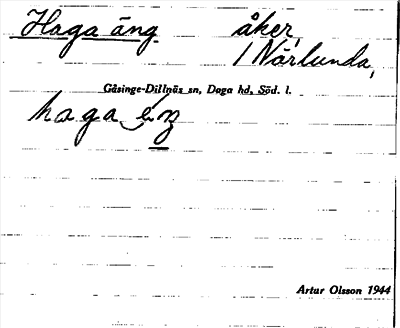 Haga äng åker,
/ Närlunda,
Gåsinge-Dillnäs sn, Daga hd, Söd. l.
haga
Artur Olsson 1944